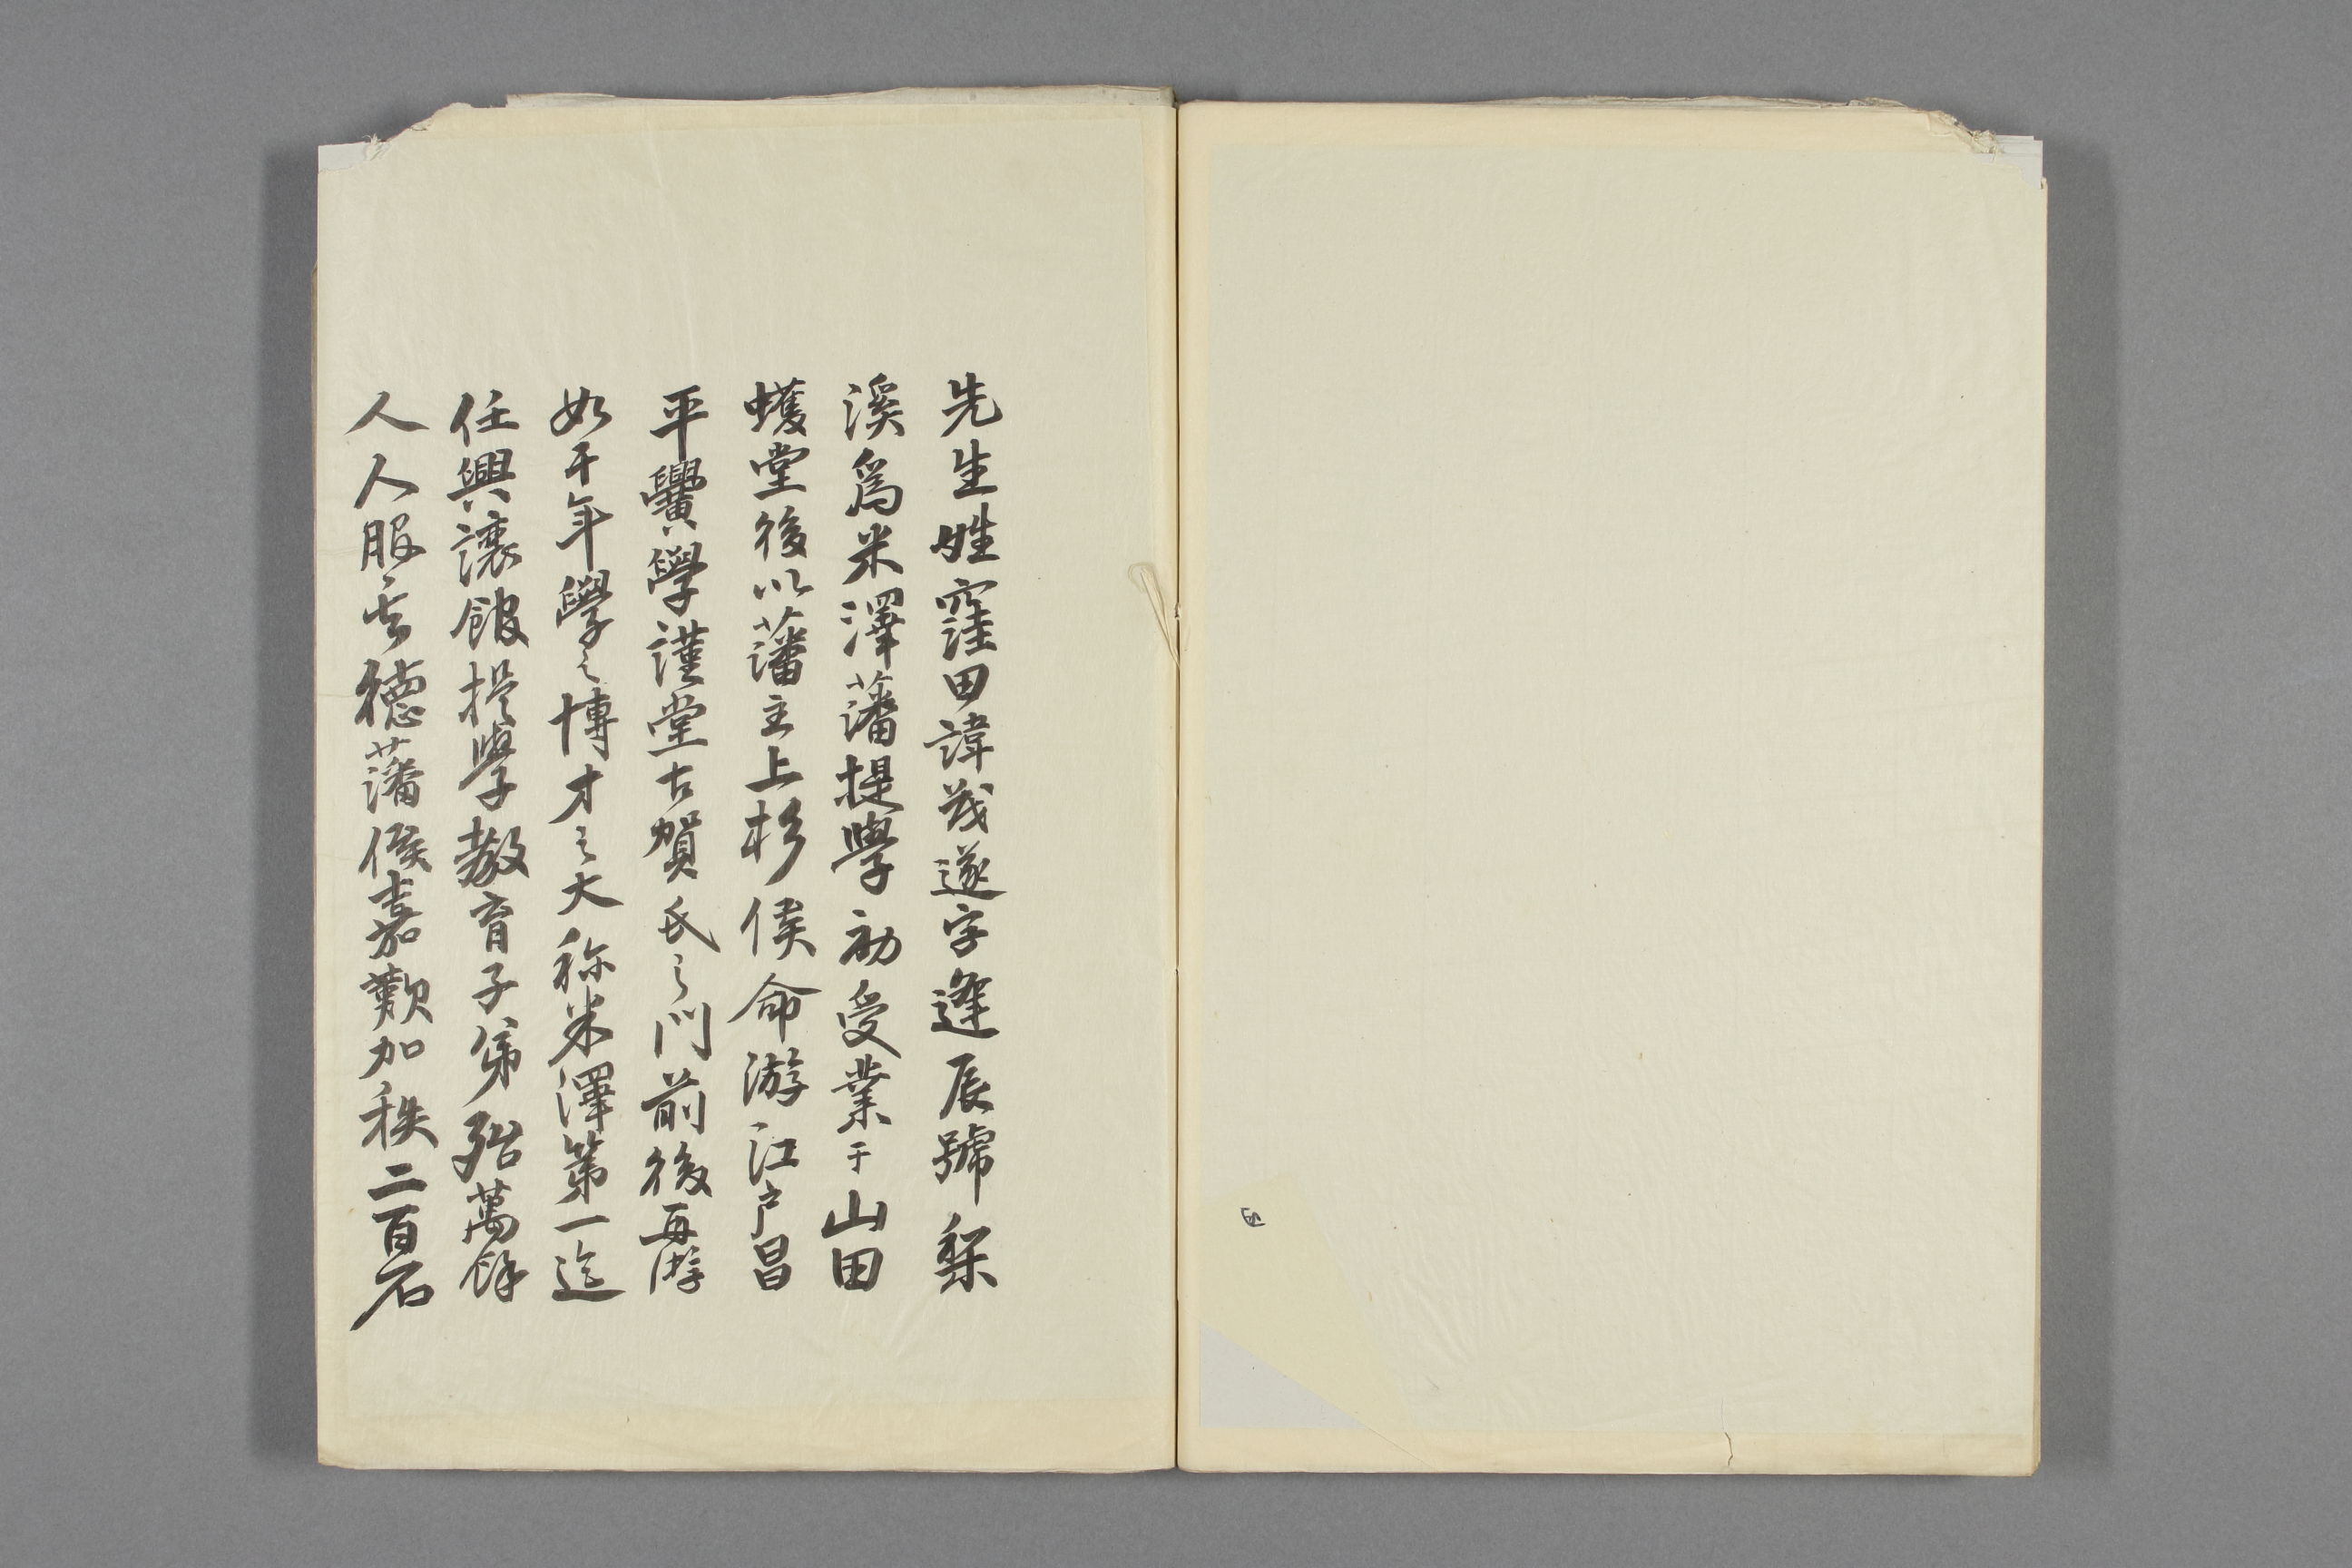 先生姓窪田諱茂遂字逢辰號梨
溪爲米澤藩提學初受業于山田
蠖堂後以藩主上杉侯命游江戸昌
平黌學謹堂古賀氏之門前後再游
如干年學之博才之大称米澤第一迨
任興讓館提學教育子弟殆萬餘
人人服其德藩侯嘉歎加秩二百石